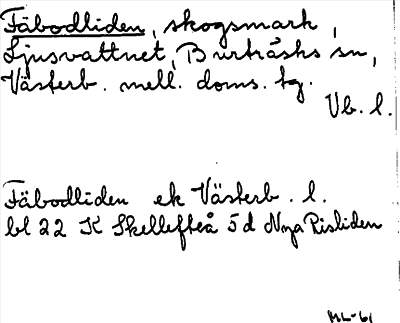 Fäbodliden, skogsmark,
Ljusvattnet, Burträsks sn,
Västerb. mell. doms. tg.
Vb. l.
Fäbodliden ek Västerb. l.
bl 22 K Skellefteå 5d Nya Risliden
ML-61